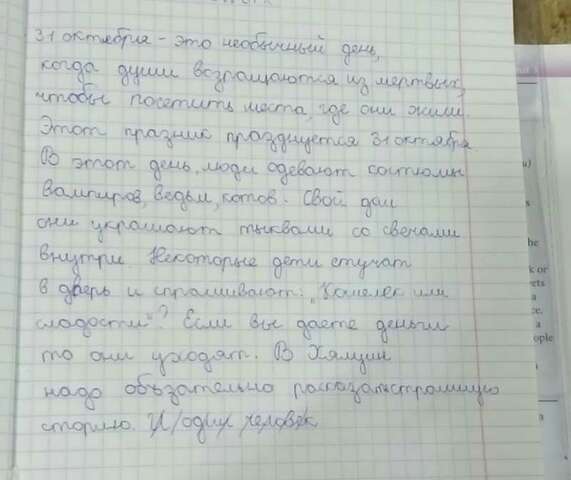 31 октября - это необычный день,
когда души возращаются из мертвых,
чтобы посетить места, где они жили.
Этот празник празднуется 31 октября.
В этот день, люди одевают костюмы
вампиров, ведьм, котов. Свой дом
они украшают тыквами со свечами
внутри. Некоторые дети стучат
в дверь и спрашивают: „Кошелек или
сладости"? Если вы даете деньги
то они уходят. В Хялуин
надо обязательно рассказать страшную
сторию. И/один человек
be
k or
ets
a
ce.
a
ople